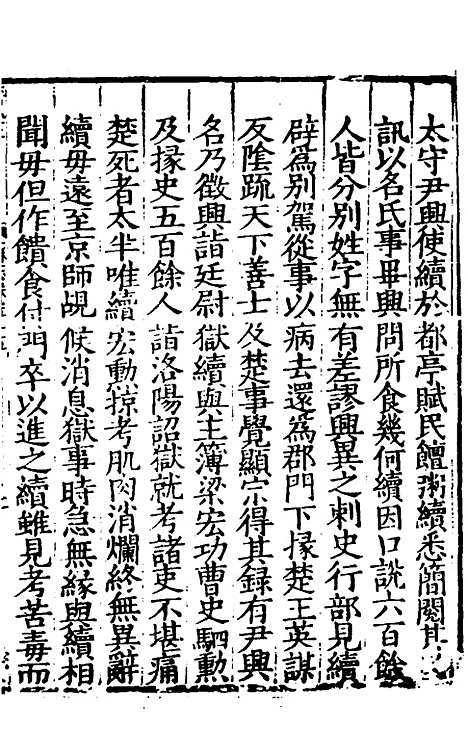 太守尹興使續於都亭賦民饘粥續悉簡閱其
訊以名氏事畢興問所食幾何續因口說六百餘
人皆分別姓字無有差謬興異之刺史行部見續
辟為別駕從事以病去還為郡門下掾楚王英謀
反陰䟽天下善士及楚事覺顯宗得其録有尹興
名乃徵興詣廷尉獄續與主簿梁宏功曹史駟勲
及掾史五百餘人詣洛陽詔獄就考諸吏不堪痛
楚死者太半唯續宏勳掠考肌肉消爛終無異辭
續母遠至京師覘候消息獄事特急無緣與續相
聞母但作饋食付門卒以進之續雖見考苦毒而